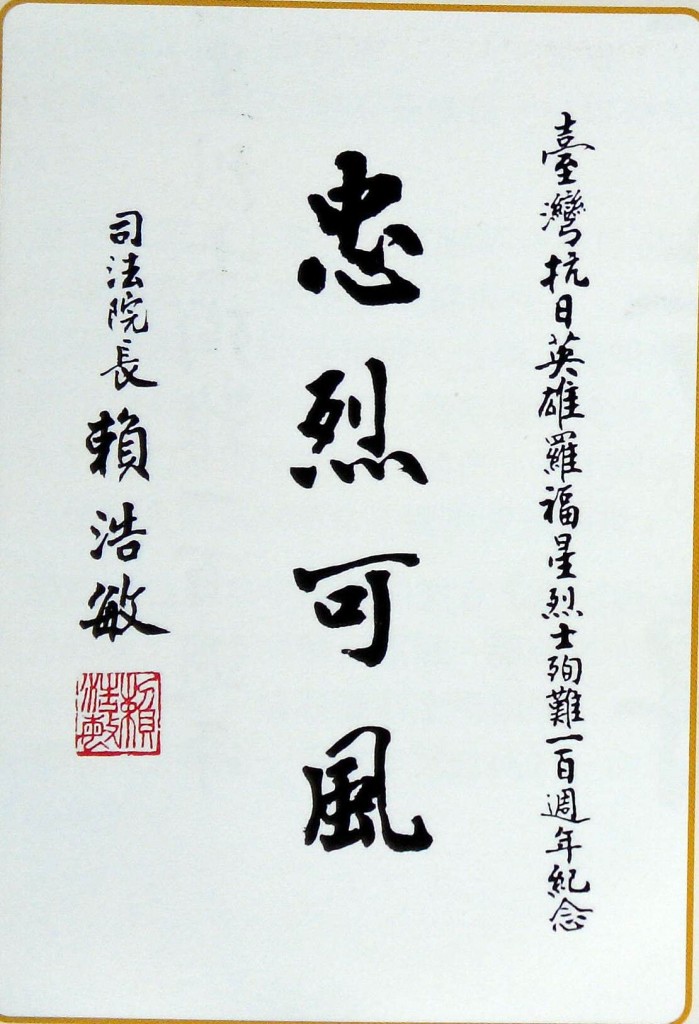 臺灣抗日英雄羅福星烈士殉難一百週年紀念
忠烈可風
司法院長賴浩敏
賴浩敏